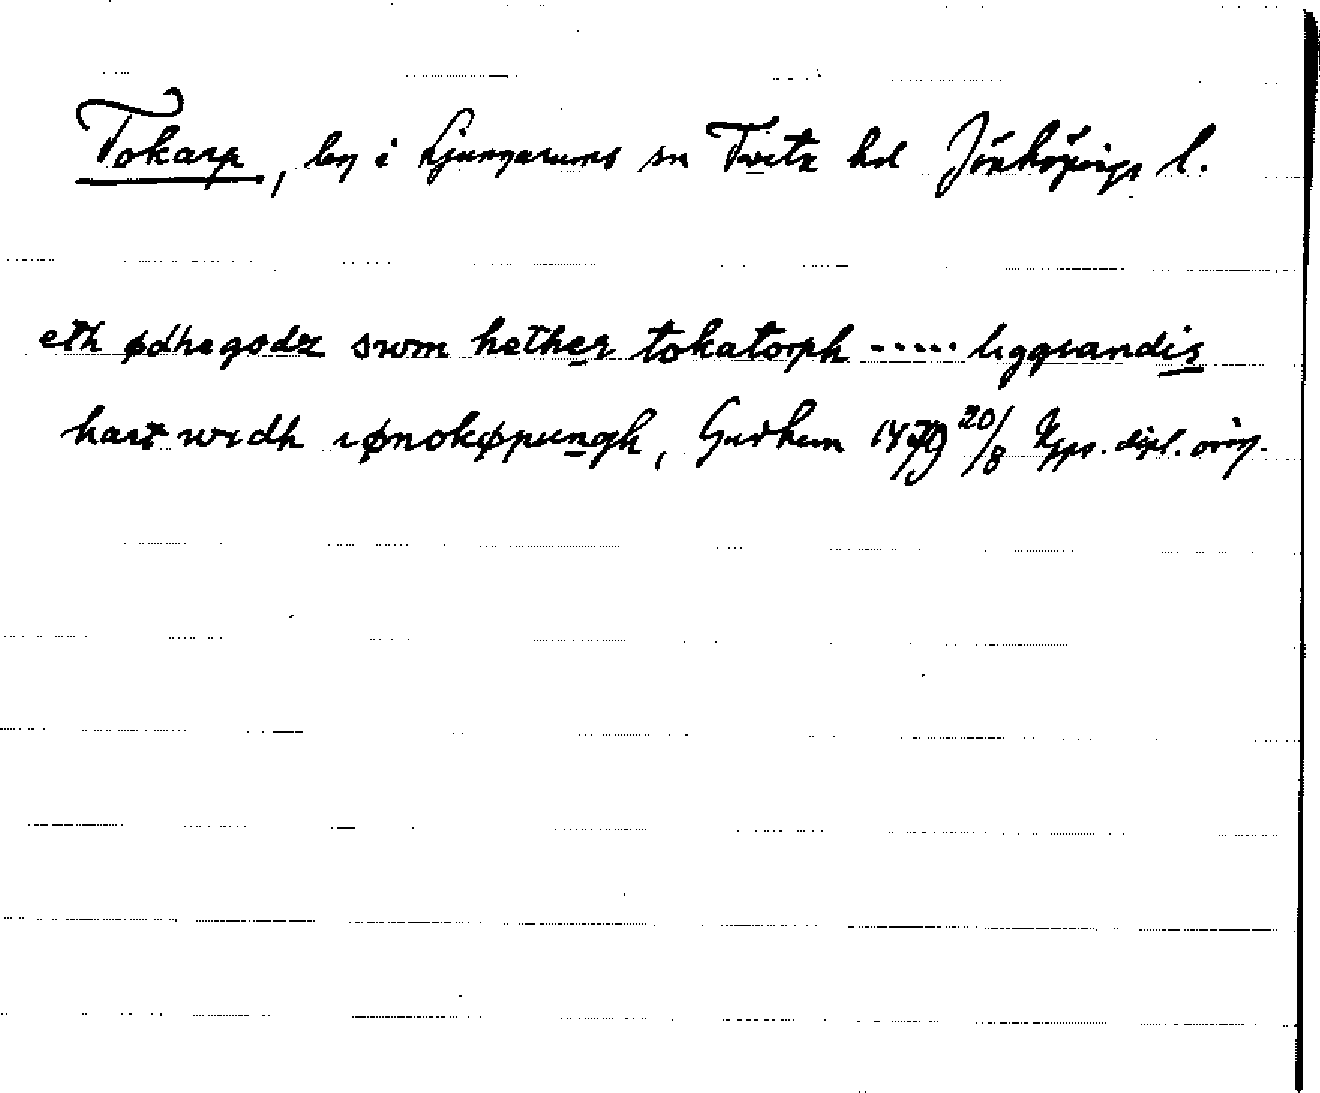 Tokarp, by i Ljungarums sn Tveta hd Jönköpings l.
eth ødhegodz swm hether tokatorph ----- liggiandis
hart widh iønokøpungh, Gudhem 1479 20/8 Pgps. dipl. orig.